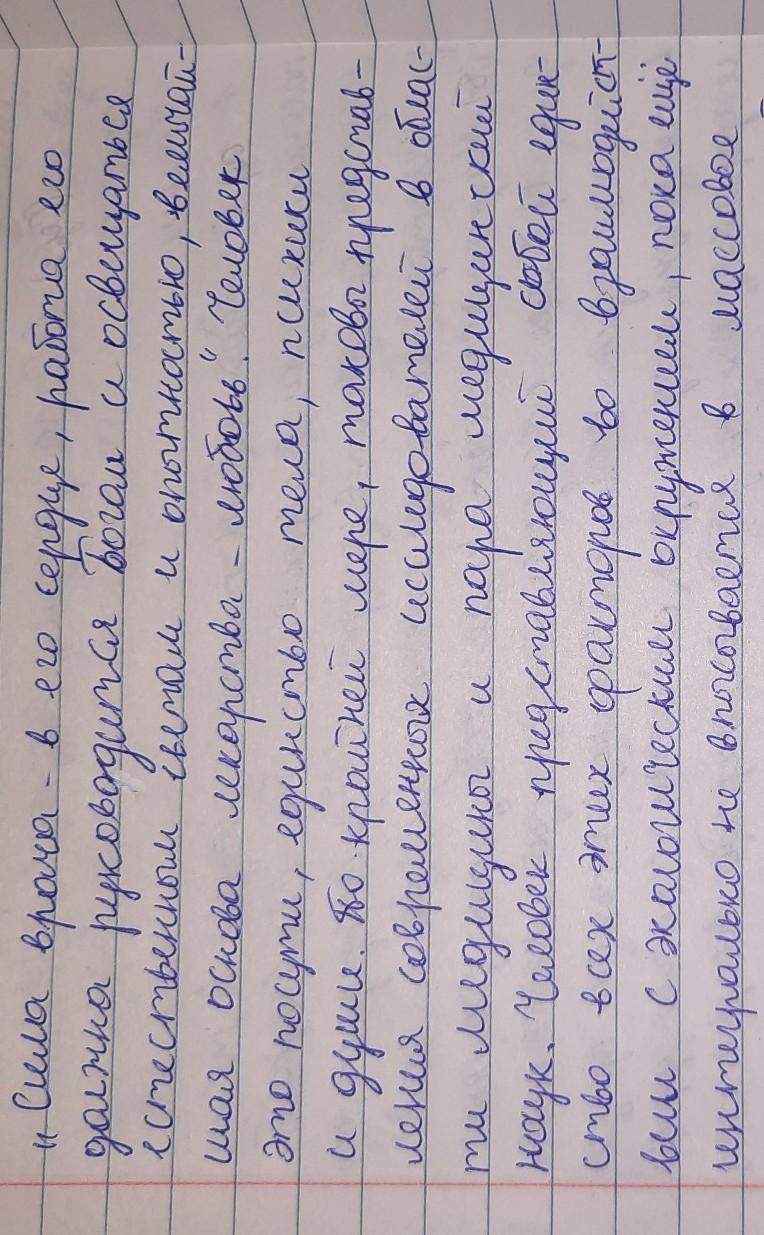 „Сила врача - в его сердце, работа его
должна руководится Богом и освещаться
естественным светом и опытностью, величай-
шая основа лекарства - любовь". Человек
это посути, единстью тела, психики
и души. По крайней мере, таковы представ-
ления современных исследователей в облас-
ти медицины и пара медицинский
наук. Человек представляющий собой един-
ство всех этих факторов во взаимодейст-
вии с экологическим окружением, пока ещё
интегрально не вписывается в массовое